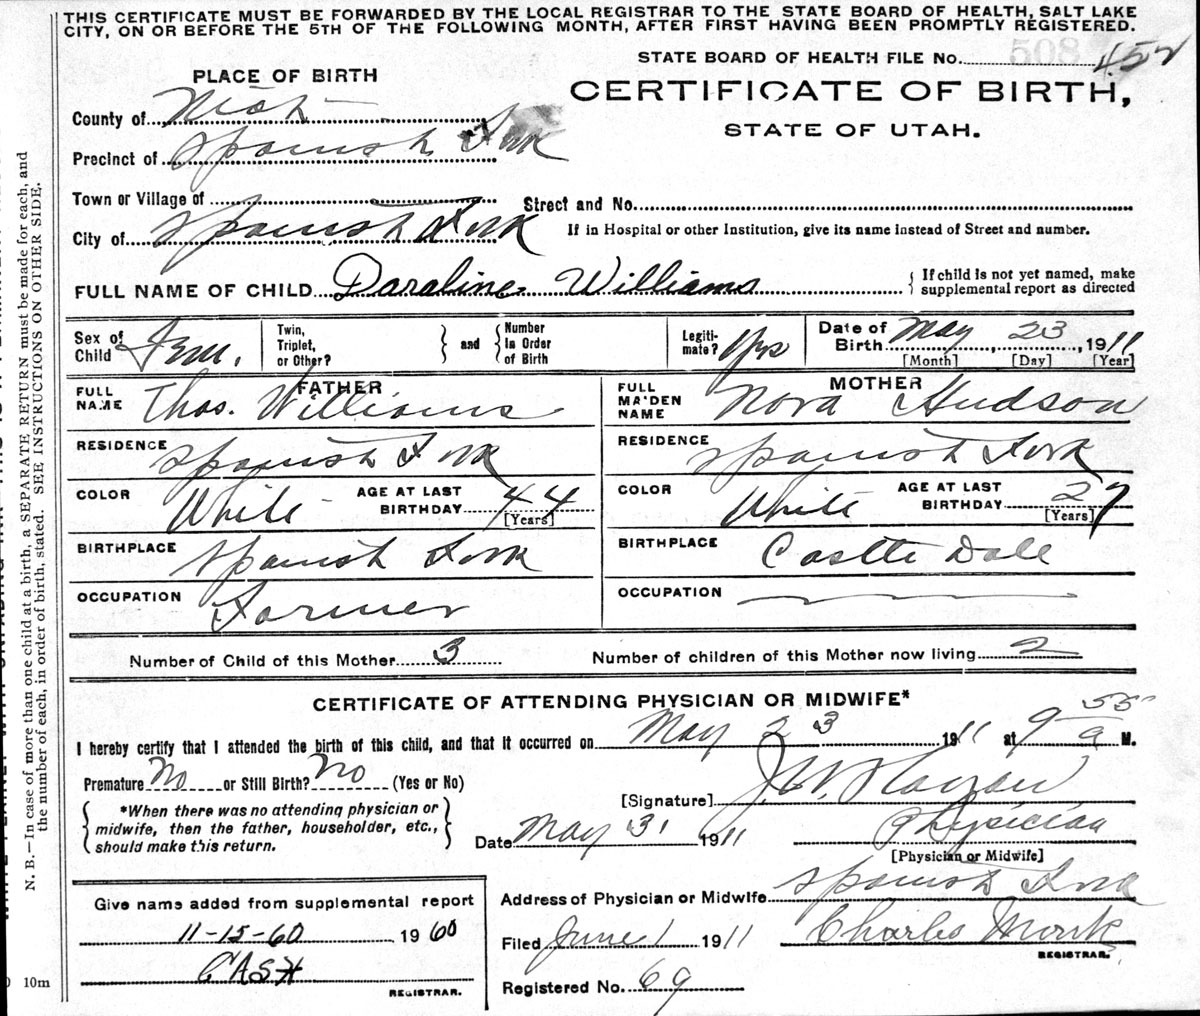 THIS CERTIFICATE MUST BE FORWARDED BY THE LOCAL REGISTRAR TO THE STATE BOARD OF HEALTH, SALT LAKE
CITY, ON OR BEFORE THE 5TH OF THE FOLLOWING MONTH, AFTER FIRST HAVING BEEN PROMPTLY REGISTERED.
STATE BOARD OF HEALTH FILE No. 508 452
PLACE OF BIRTH
CERTIFICATE OF BIRTH,
STATE OF UTAH.
County of Utah
Precinct of Spanish Fork
Town or Village of
Street and No.
City of Spanish Fork
If in Hospital or other Institution, give its name instead of Street and number.
FULL NAME OF CHILD Daraline Williams
{ If child is not yet named, make supplemental report as directed
Sex of Child Fem.
Twin, Triplet, or Other? } and { Number In Order of Birth
Legitimate? Yes
Date of Birth May 23, 1911
[Month] [Day] [Year]
FATHER
FULL NAME Thos. Williams
RESIDENCE Spanish Fork
COLOR White AGE AT LAST BIRTHDAY 44 [Years]
BIRTHPLACE Spanish Fork
OCCUPATION Farmer
MOTHER
FULL MAIDEN NAME Nora Hudson
RESIDENCE Spanish Fork
COLOR White AGE AT LAST BIRTHDAY 27 [Years]
BIRTHPLACE Castle Dale
OCCUPATION
Number of Child of this Mother 3 Number of children of this Mother now living 2
CERTIFICATE OF ATTENDING PHYSICIAN OR MIDWIFE*
I hereby certify that I attended the birth of this child, and that it occurred on May 23 1911 at 9 55 a M.
Premature No or Still Birth? No (Yes or No)
{ *When there was no attending physician or
midwife, then the father, householder, etc.,
should make this return. }
[Signature] J.W.
Date May 31 1911 Physician
[Physician or Midwife]
Give name added from supplemental report
11-15-60 1960
CASH
REGISTRAR.
Address of Physician or Midwife Spanish Fork
Filed June 1 1911 Charles Monk
REGISTRAR.
Registered No. 69
N. B.—In case of more than one child at a birth, a SEPARATE RETURN must be made for each, and
the number of each, in order of birth, stated. SEE INSTRUCTIONS ON OTHER SIDE.
10m